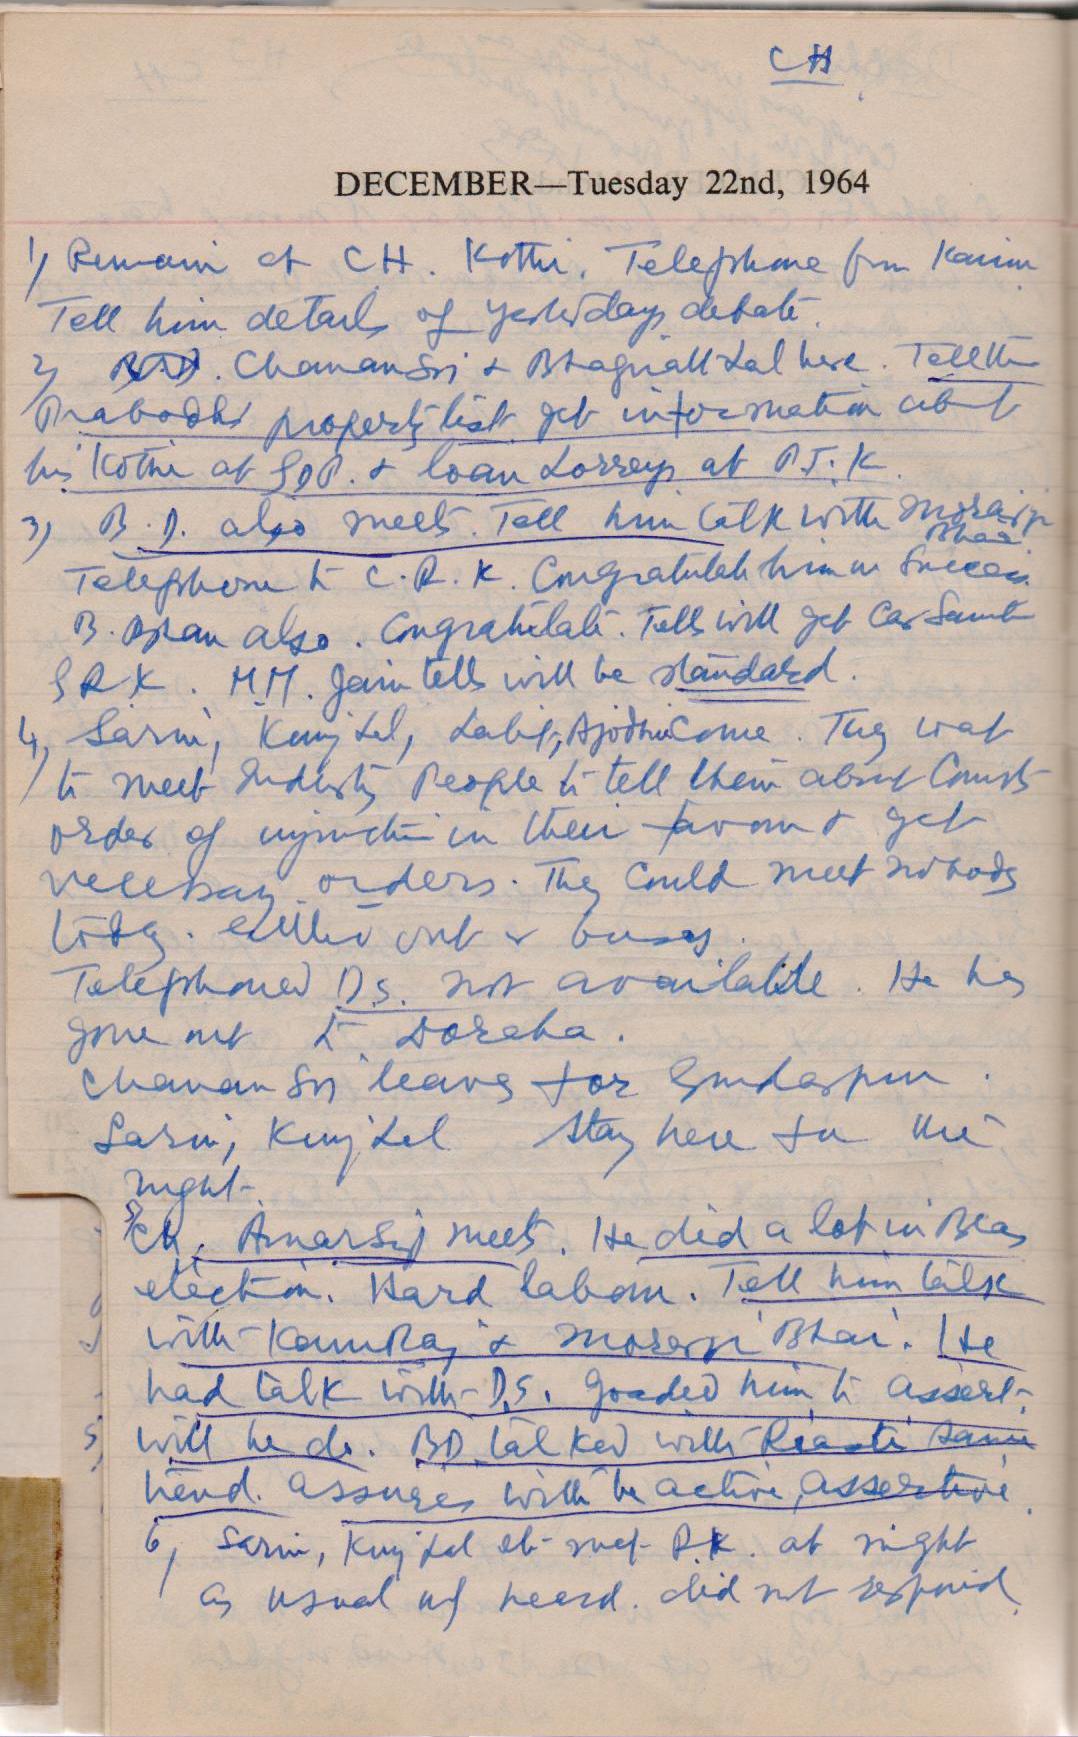 CH
DECEMBER—Tuesday 22nd, 1964
1) Remain at CH. Kothi. Telephone from
Tell him details of yesterdays debate.
2) Chanan Singh & Lal here. Tell
Prabodh property list get information about
his Kothi at GDP. & loan Lorreys at P.T.K.
3) B.D. also meets. Tell him talk with Morarji
Bhai.
Telephone to C.R.K. Congratulate him on Success.
B. also. Congratulate. Tells will get Car
G R K. M.M. Jain tells will be standard.
4) Sarni, Kunj Lal, come. They want
to meet Industry People to tell them about Courts
order of injunction in their favour & get
necessary orders. They could meet nobody
today. either out or busy.
Telephoned D.S. not available. He has
gone out to Doraha.
Chanan Singh leaves for Gurdaspur.
Sarni, Kunj Lal stay here for the
night.
5) Ch. Amar Singh meets. He did a lot in Beas
election. Hard labour. Tell him talk
with KamRaj & Morarji Bhai. He
had talk with D.S. goaded him to assert.
will he do. BD talked with
assures will be active, assertive.
6) Sarni, Kunj Lal etc met R.K. at night
as usual heard. did not respond.